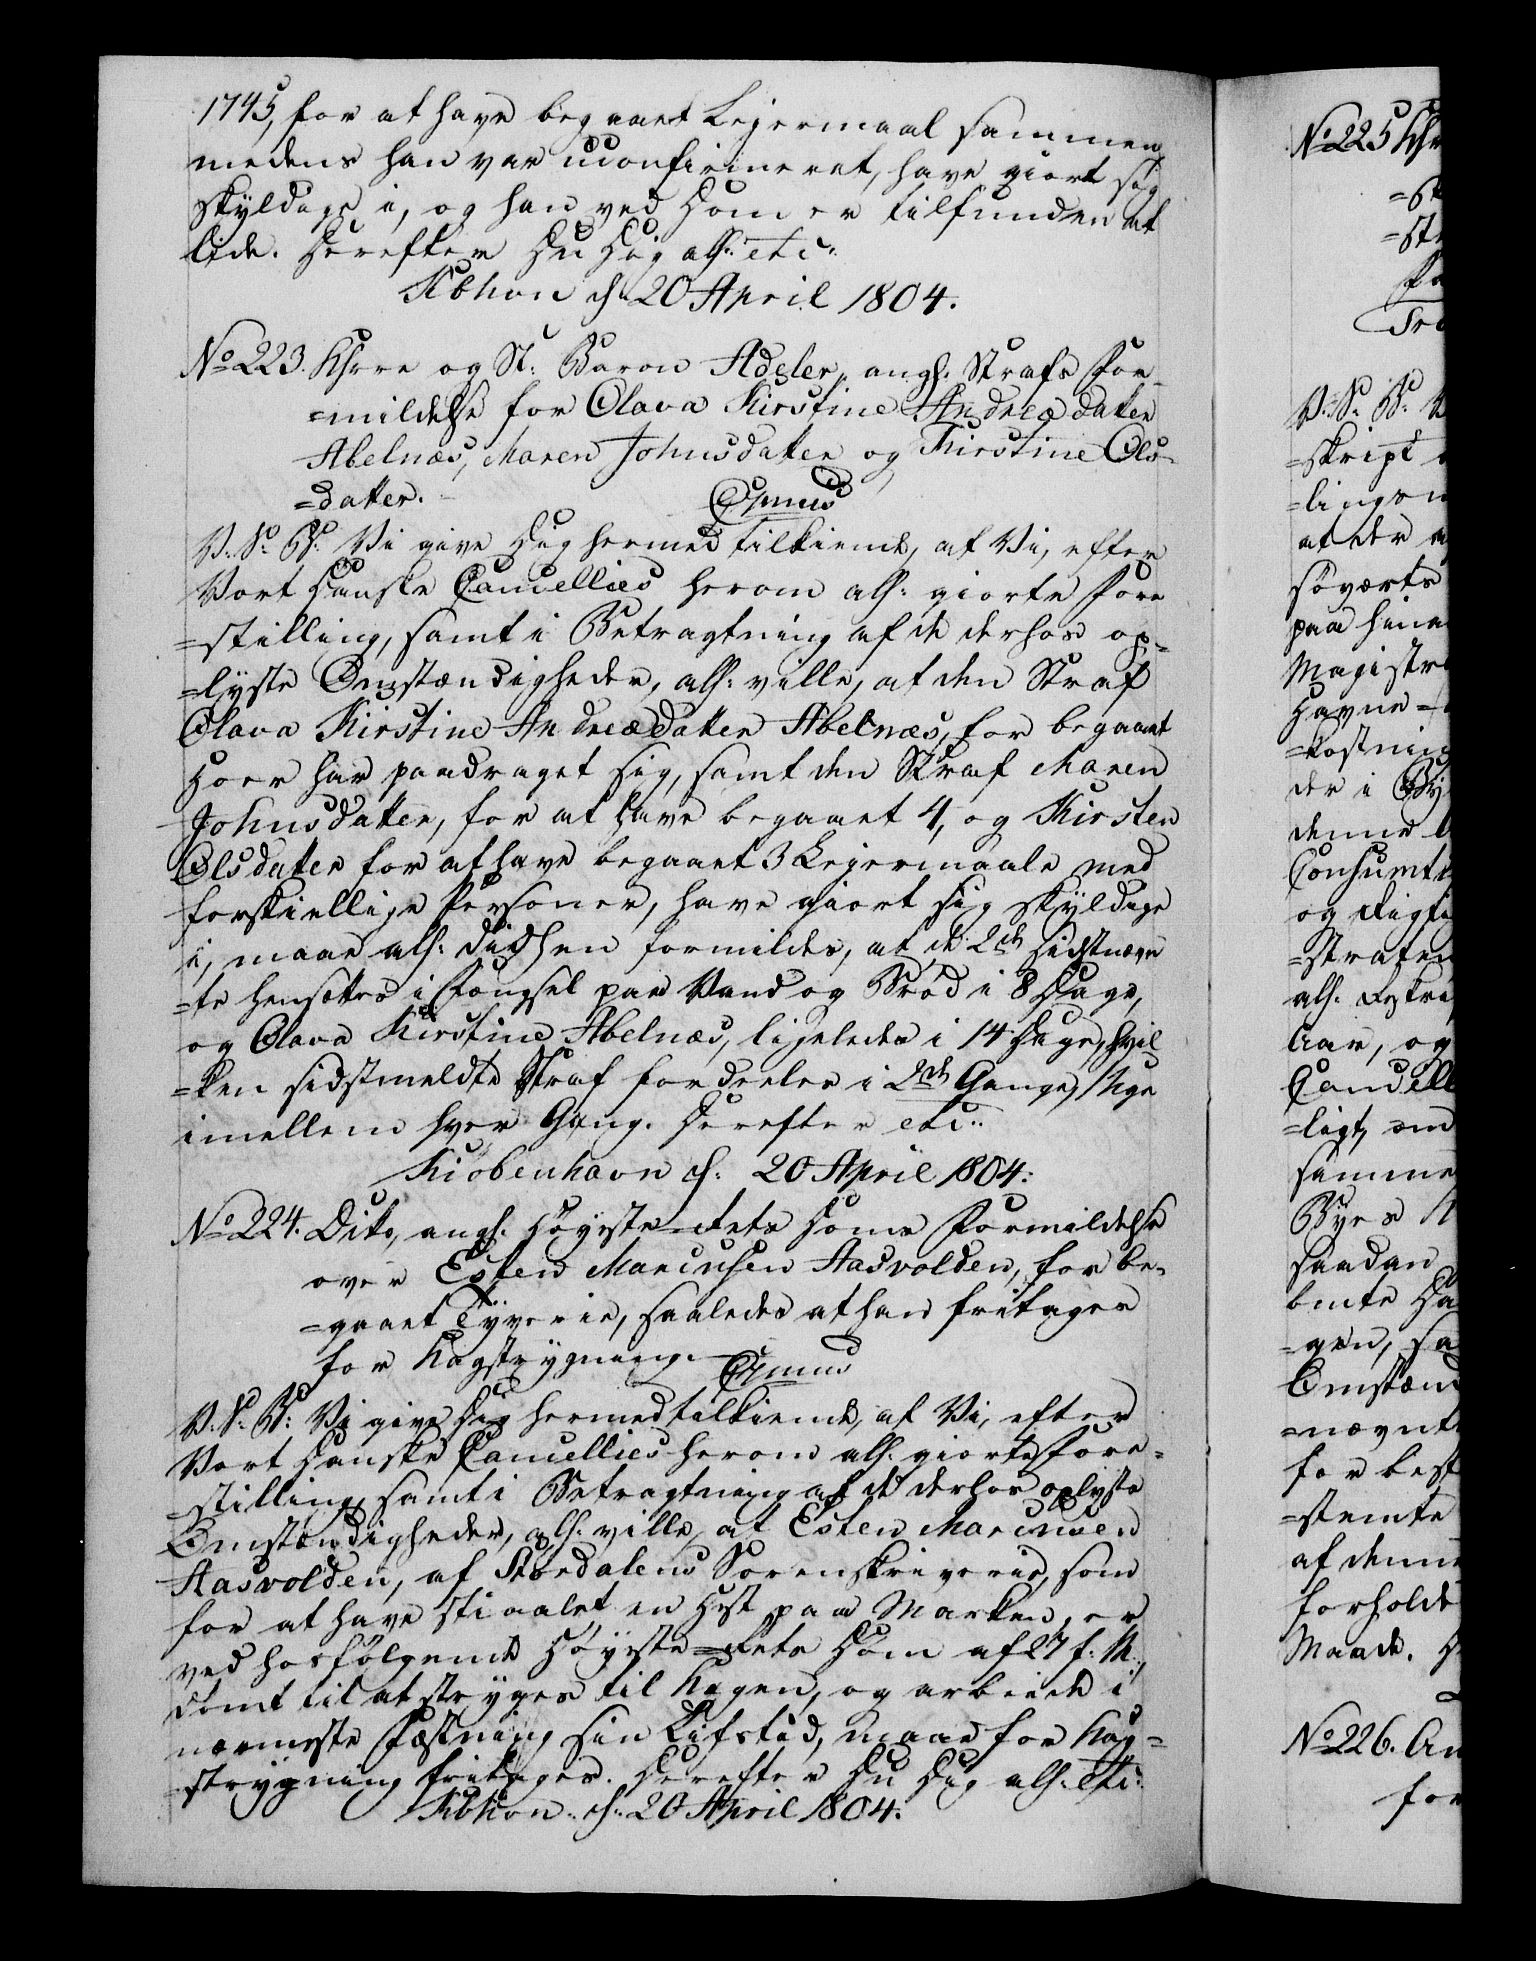 1745, for at have begaaet Lejermaal sammen
medens han var uconfirmeret, have giort sig
skyldige i, og han ved Dom er tilfunden at
lide. Derefter Du Dig allr: etc:
Kbhvn d. 20 April 1804.
No 223. Khrre og St: Baron Adeler, angl. Strafs For-
=mildelse for Olava Kirstine Andreædatter
Abelnæs, Maren Johnsdatter og Kirstine Ols-
=datter.
V. S. B: Vi give Dig hermed tilkiende, at Vi, efter
Vort Danske Cancellies herom allr: giorte Fore
=stilling, samt i Betragtning af de derhos op-
=lyste Omstændigheder, allr: ville, at den Straf
Olava Kirstine Andreædatter Abelnæs, for begaaet
Hoer har paadraget sig, samt den Straf Maren
Johnsdatter, for at have begaaet 4, og Kirsten
Olsdatter for at have begaaet 3 Lejermaale med
forskiellige Personer, have giort sig skyldige
i, maae allr: didhen formildes, at de 2de sidstnævn
=te hensættes i Fængsel paa Vand og Brød i 8 Dage,
og Olava Kirstine Abelnæs, ligeledes i 14 Dage, hvil
=ken sidstmeldte Straf fordeeles i 2de Gange, 1 Uge
imellem hver Gang. Derefter etc:
Kiöbenhavn d: 20 April 1804:
No 224. Dito, angl. Høyste-Rets Doms Formildelse
over Esten Marcusen Aasvolden, for be-
=gaaet Tyverie, saaledes at han fritages
for Kagstrygning.
V. S. B: Vi give Dig hermed tilkiende, at Vi, efter
Vort Danske Cancellies herom allr. giorte Fore-
=stilling samt i Betragtning af de derhos oplyste
Omstændigheder, allr. ville, at Esten Marcusen
Aasvolden, af Størdalens Sorenskriverie, som
for at have stiaalet en Hest paa Marken, er
ved hosfølgende Høyste=Rets Dom af 27 f: M.,
dømt til at stryges til Kagen, og arbeide i
nærmeste Fæstning sin Livstid, maae for Kag-
=strygning fritages. Derefter Du Dig allr: etc:
Kbhvn. d: 20 April 1804.
No 225 Khr
=st
Tro
V. S. B: V
=skript
=lings
at der
søværts
paa hina
Magistra
Havne-
=kostning
der i By
denne
Consumt
og
=straten
allr. Reskri
Aar, og
Cancell
=ligt, om
samme
Byes
saadan
bmte Ha
=gen, sa
Omstænd
=nævnt
for best
=stemte
af denn
forholde
Maade. D
No 226. An
for